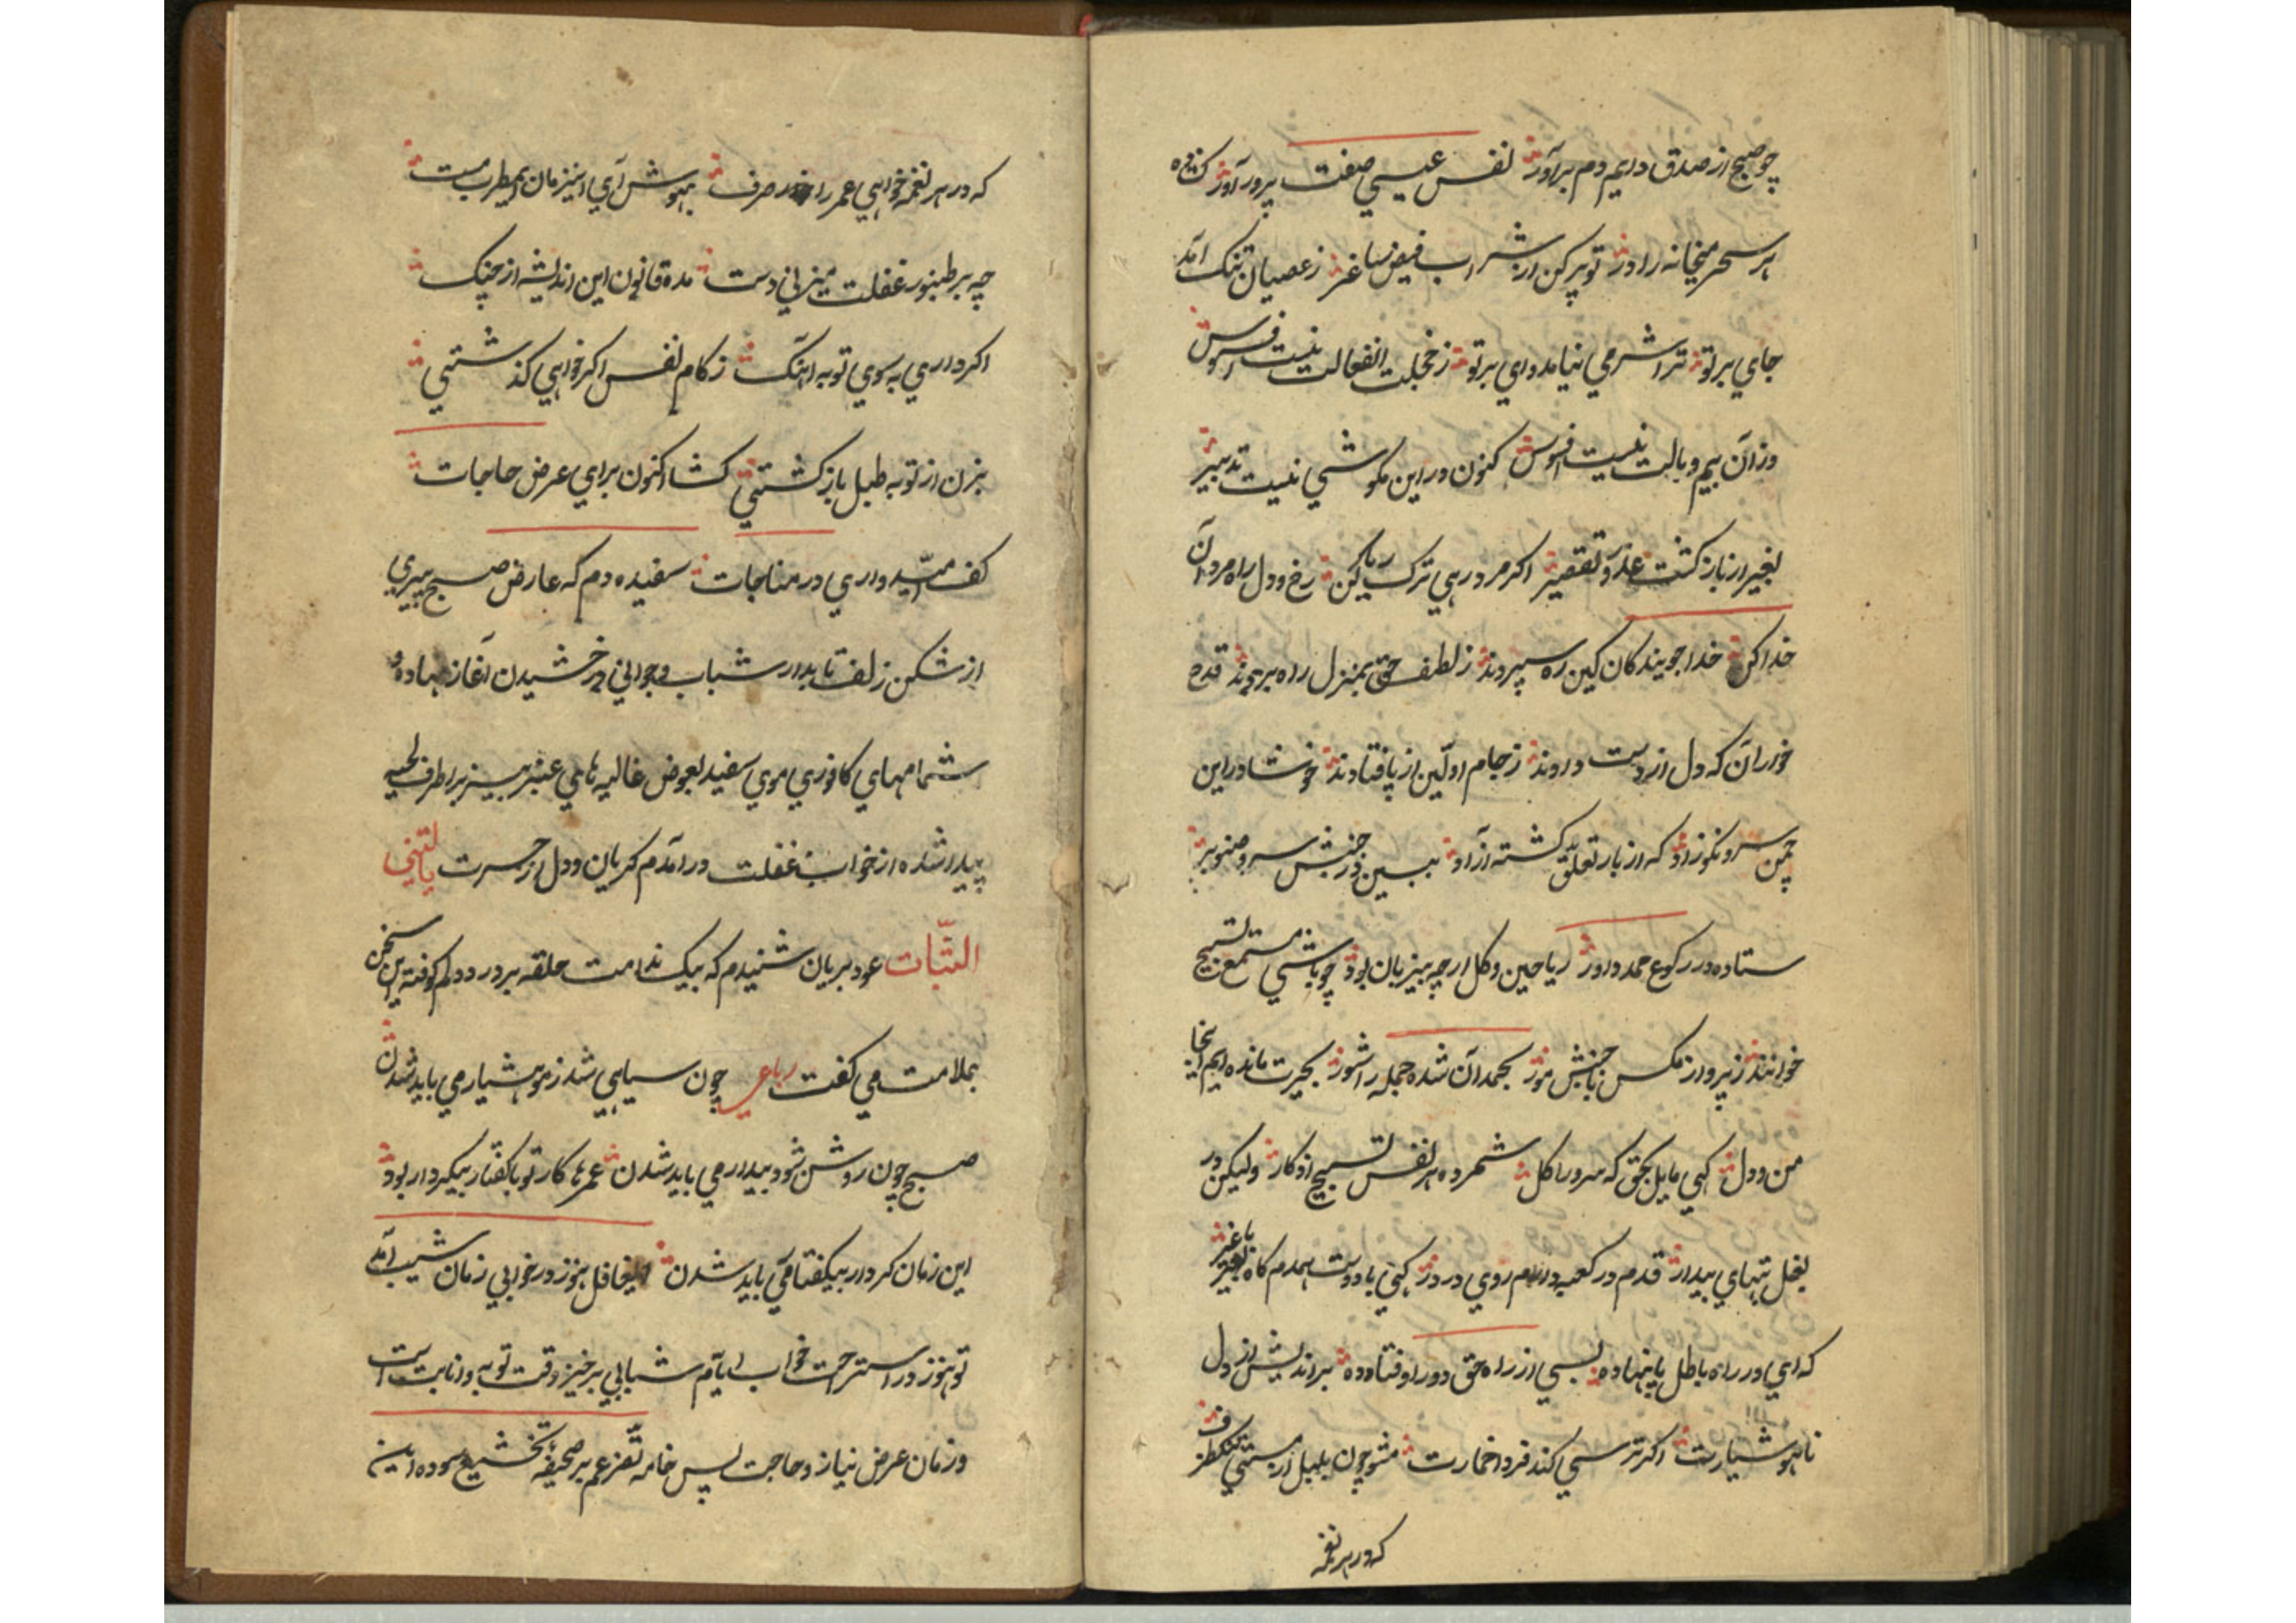 چو صبح از صدق دایم دم برآور نفس عیسی صفت پرور آور کزین ره
هر سحر میخانه را در تو پر کن از شراب فیض ساغر ز عصیان تنک آمد
جای بر تو ترا شرمی نیامد وای بر تو ز خجلت انفعالت نیست افسوس
وزان بیم و بالت نیست افسوس کنون در این نکوشی نیست تدبیر
بغیر از باز کشت عذر و تقصیر اکر مرد رهی ترک ریا کن رخ و دل راه مردان
خدا کن خدا جویندکان کین ره سپردند ز لطف حق بمنزل راه بردند قدح
خوران که دل از دست دادند ز جام اولین از پا فتادند خوشا در این
چمن سرو نکوزاد که از بار تعلق کشته آزاد ببین در جنبش سرو صنوبر
ستاده در رکوع حمد داور ریاحین و کل ارچه بیزبان بود چو باشی مستمع تسبیح
خوانند ز پرواز مکس تا جنبش مور بحمد آن شده جمله را شور بحیرت مانده ایم اینجا
من و دل کهی مایل بحق که سرو را کل شمرده هر نفس تسبیح اذکار ولیکن در
بغل بتهای بیدار قدم در کعبه دارم روی در دیر کهی با دوست همدم کاه با غیر
که ای در راه باطل پا نهاده بسی از راه حق دور اوفتاده براندیش از دل
ناهوشیارت اکر ترسی کند فردا خمارت مشو چون بلبل از مستی تنک ظرف
که در هر نغمه
که در هر نغمه خواهی عمر را صرف بهوش آی این زمان ایمطرب مست
چه بر طنبور غفلت میزنی دست مده قانون این اندیشه از چنک
اکر داری بسوی توبه آهنک ز کام نفس اکر خواهی کذشتنی
بزن از توبه طبل باز کشتنی کشا اکنون برای عرض حاجات
کف امیدواری در مناجات سفیده دم که عارض صبح پیری
از شکن زلف تابدار شباب و جوانی درخشیدن آغاز نهاده و
شمامهای کافوری موی سفید بعوض غالیه های عنبر بیز بر اطراف لحیه
پیدا شده از خواب غفلت در آمدم کریان و دل از حسرت یالیتنی
التبات عود بریان شنیدم که پیک ندامت حلقه بر در دلم کوفته این سخن
بملامت می کفت رباعی چون سیاهی شد ز مو هشیار می باید شدن
صبح چون روشن شود بیدار می باید شدن عمرها کار تو با کفتار بیکردار بود
این زمان کردار بیکفتار می باید شدن ایغافل هنوز در خوابی زمان شیب آمد
تو هنوز در استراحت خواب ایام شبابی برخیز وقت توبه و انابت است
و زمان عرض نیاز و حاجت پس خامه تضرعم بر صحیفه تخشع سوده این